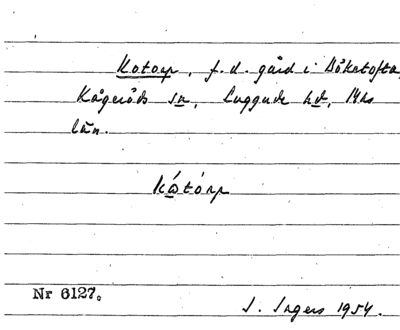 Kotorp, f.d. gård i Böketofta,
Kågeröds sn, Luggude hd, Mhs
län.
Kótórp
Nr 6127.
I. Ingers 1954.